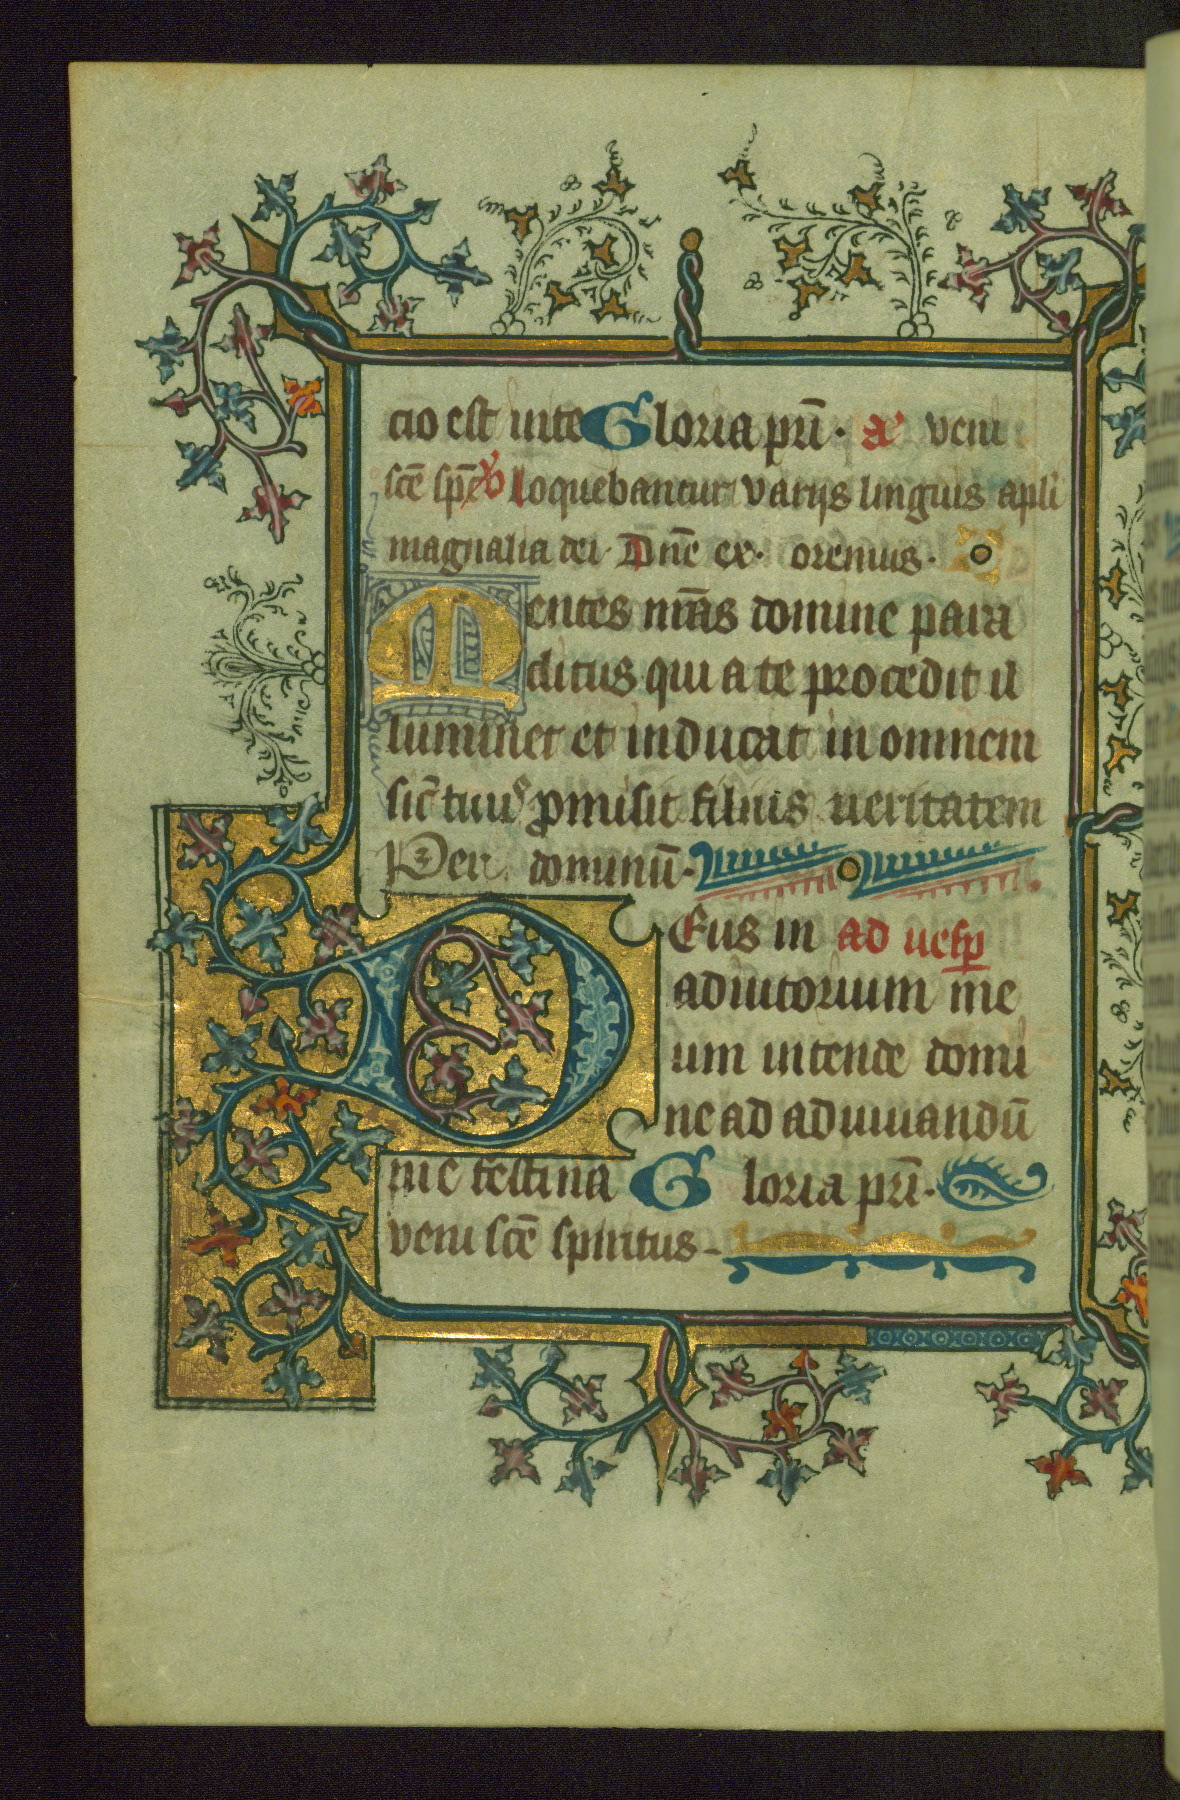 cio est in te Gloria pr̄i · a᷎ veni
sc̄e sp̄c ℣ loquebantur varijs linguis apl̄i
magnalia dei · Dn̄e ex · oremus ·
Mentes nr̄as domine para
ditus qui a te procedit il
luminet et inducat in omnem
sic̄ tuus promisit filius veritatem
Per dominū ·
Deus in ad vesp̄
adiutorium me
um intende domi
ne ad adiuuandū
me festina Gloria pr̄i ·
veni sc̄e spiritus -